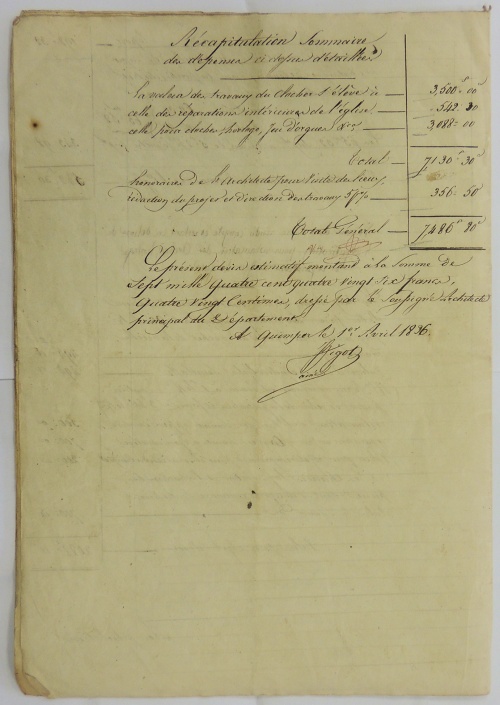 Récapitulation Sommaire
des dépenses ci dessus détaillées
La valeur des travaux du clocher s'élève à — 3,500 = 00
celle des réparations intérieures de l'église — 542 30
celle pour cloches, horloge, jeu d'orgues &ca — 3,088 = 00
Total — 7130 = 30
honoraires de l'Architecte pour visite des lieux,
rédaction du projet et direction des travaux 5 p% — 356 = 50
Total Général — 7486 = 80
Le présent devis estimatif montant à la Somme de
Sept mille quatre cent quatre vingt Six francs,
quatre vingt Centimes, dressé par le Soussigné architecte
principal du Département.
A Quimper le 1er Avril 1836.
Bigot
ainé